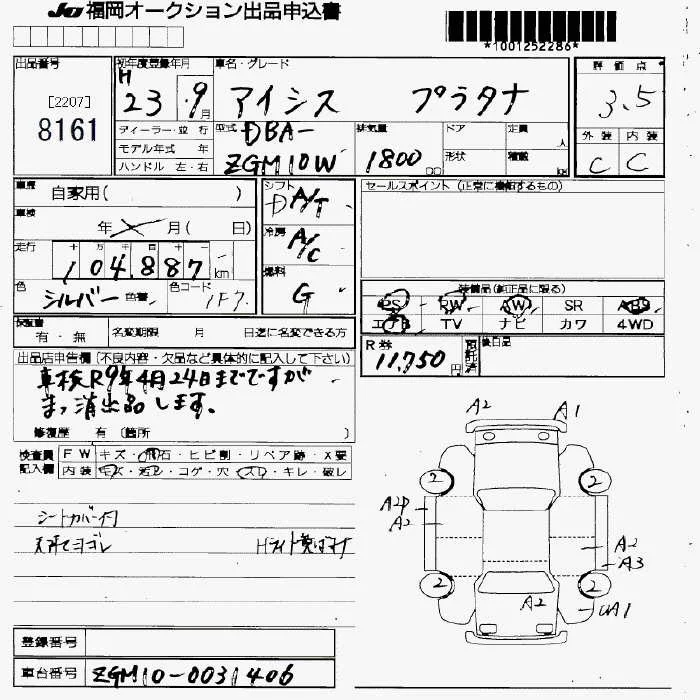 JU 福岡オークション出品申込書
*1001252286*
出品番号
[2207]
8161
初年度登録年月
H 23 . 9 月
車名・グレード
アイシス プラタナ
評価点
3.5
ディーラー・並行
モデル年式 年
ハンドル 左・右
型式 DBA-
ZGM10W
排気量
1800 cc
ドア
形状
定員 人
積載 kg
外装 内装
C C
車歴 自家用( )
車検 年 月( 日)
走行 十 万 千 百 十
104,887 km
色 シルバー 色替
色コード 1F7
シフト D A/T
冷房 A/C
燃料 G
セールスポイント (正常に機能するもの)
装備品(純正品に限る)
PS PW AW SR ABS
エアB TV ナビ カワ 4WD
保証書 有・無
名変期限 月 日迄に名変できる方
R券 11,750 円
預託済
後日品
出品店申告欄 (不良内容・欠品など具体的に記入して下さい)
車検R9年4月24日までですが
まっ消出品します。
修復歴 有 (箇所 )
検査員記入欄
FW キズ・飛石・ヒビ割・リペア跡・X要
内装 キズ・汚レ・コゲ・穴・スレ・キレ・破レ
シートカバー付
天井ヨゴレ
A2 A1
2 2
A2P
A2
A2
A3
2 2
A2
UA1
登録番号
車台番号 ZGM10-0031406